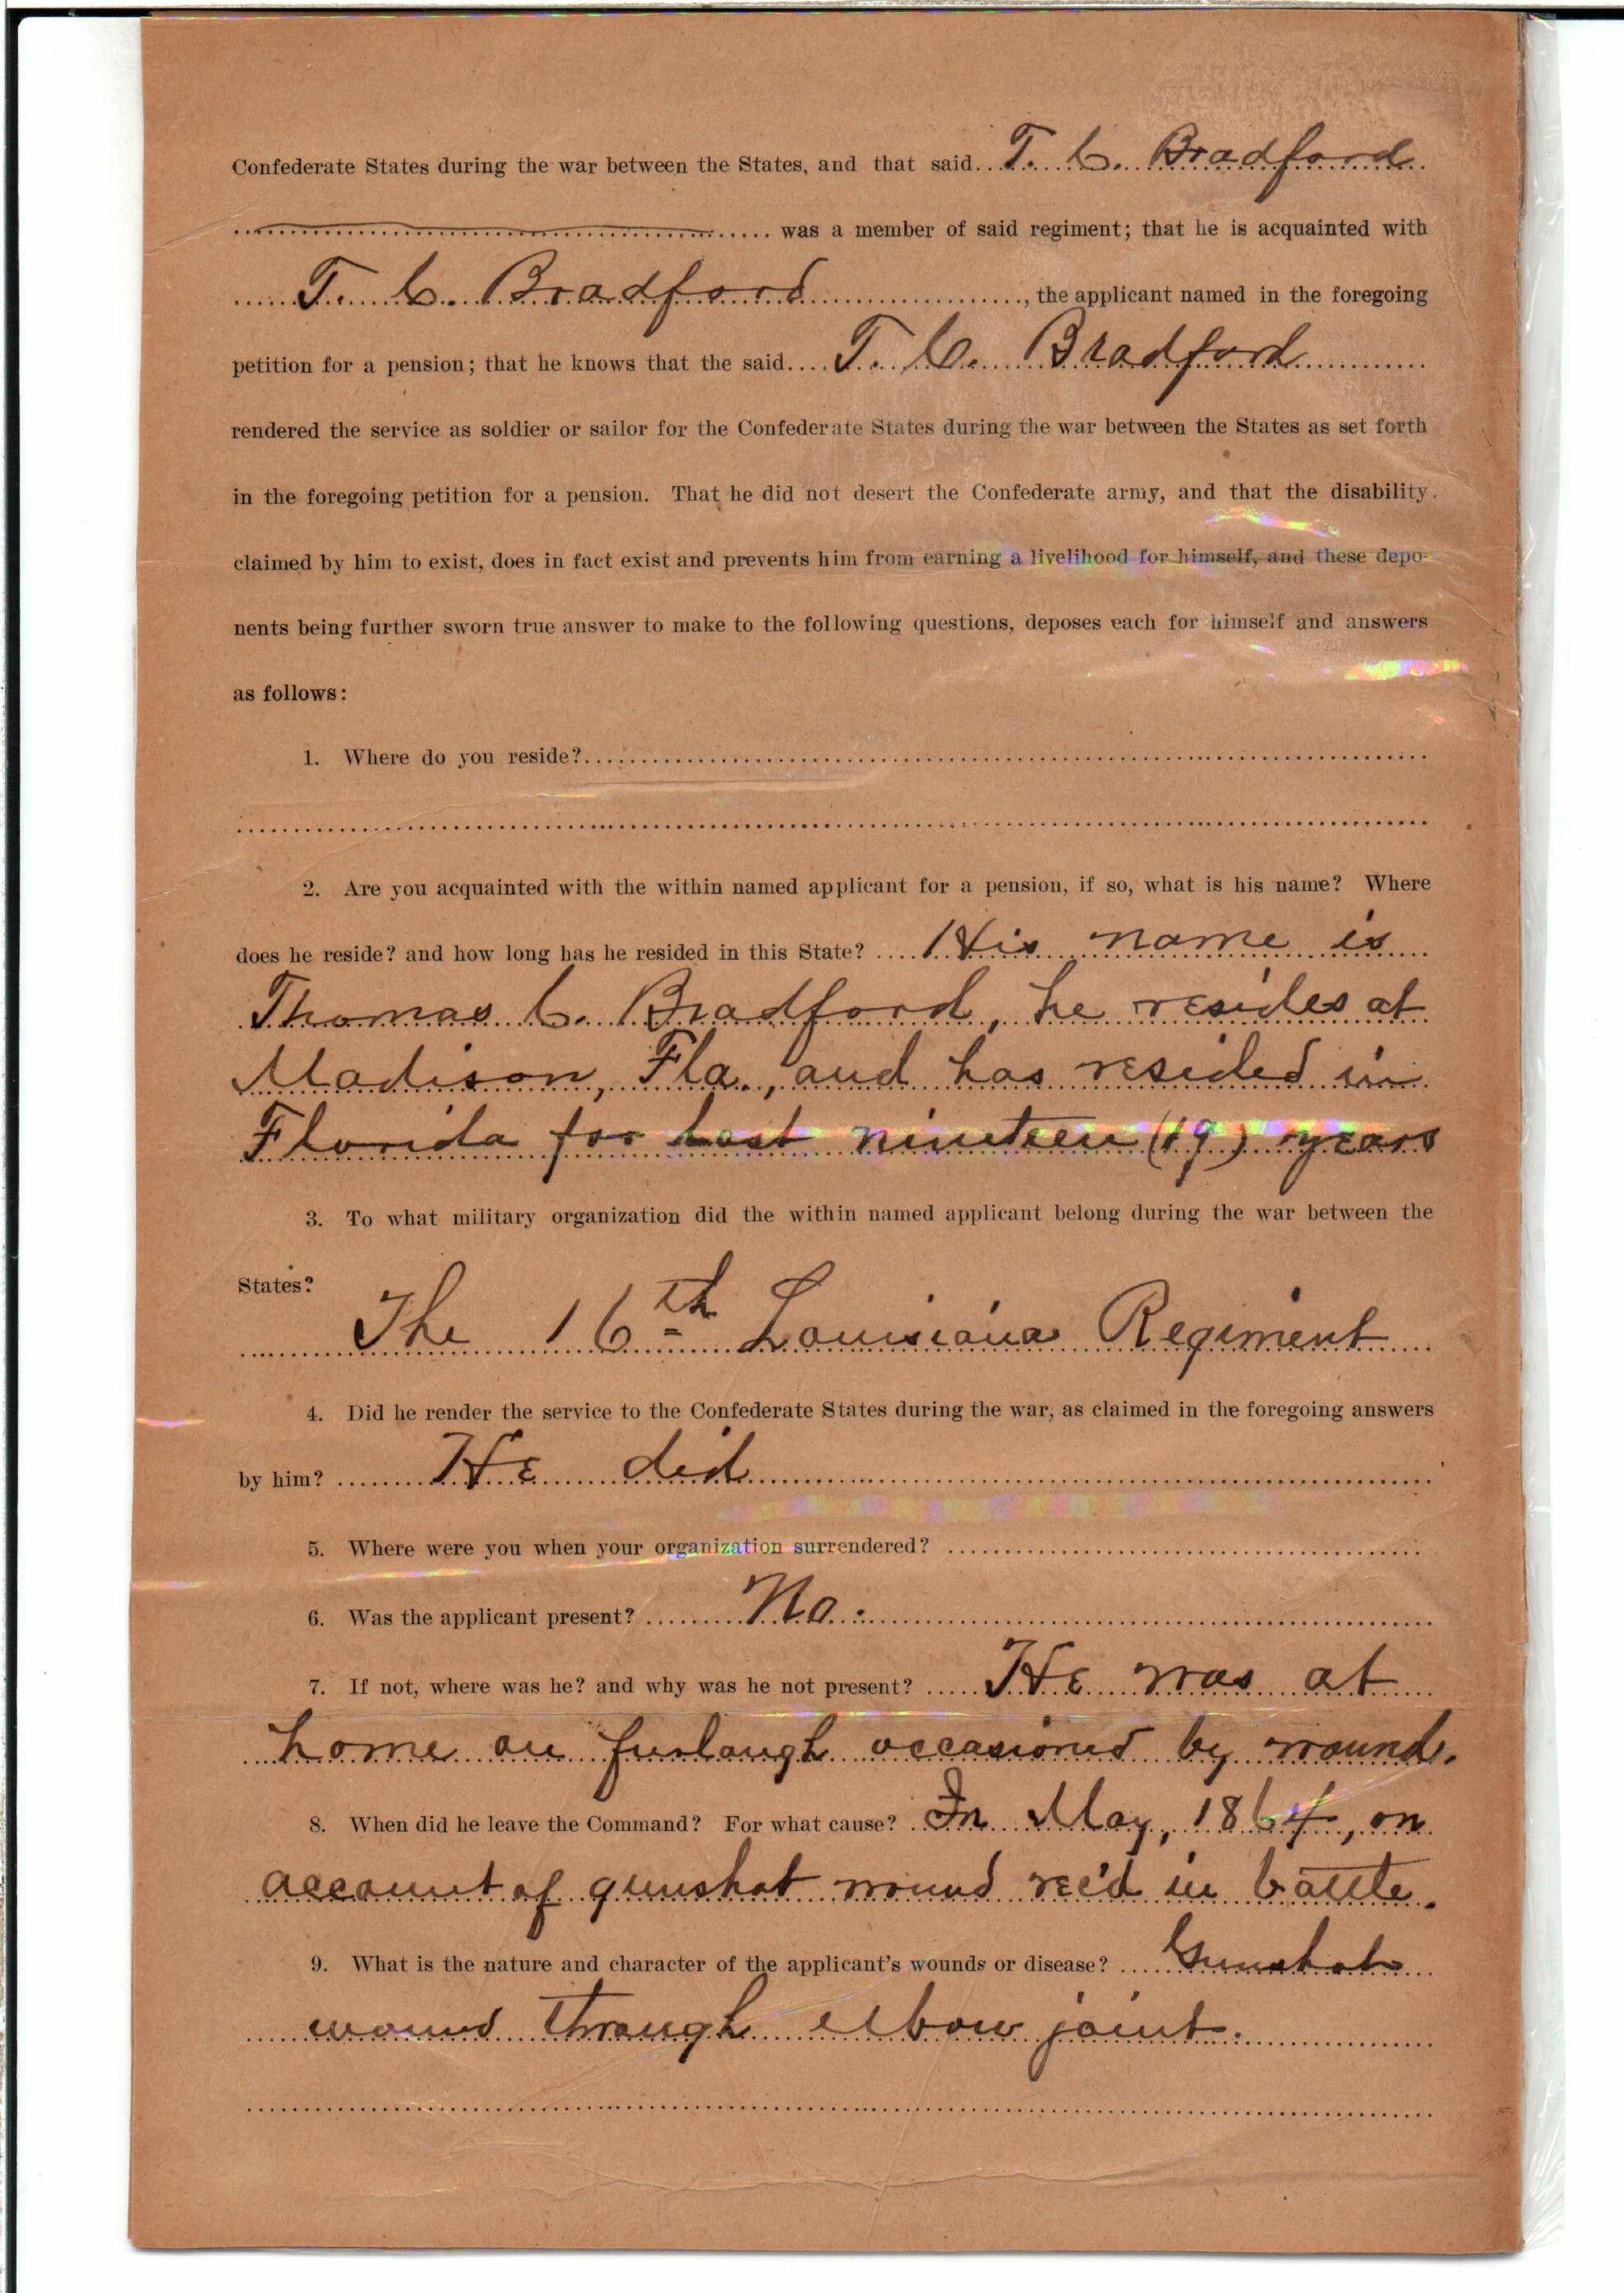 Confederate States during the war between the States, and that said T. C. Bradford
was a member of said regiment; that he is acquainted with
T. C. Bradford, the applicant named in the foregoing
petition for a pension; that he knows that the said T. C. Bradford
rendered the service as soldier or sailor for the Confederate States during the war between the States as set forth
in the foregoing petition for a pension. That he did not desert the Confederate army, and that the disability
claimed by him to exist, does in fact exist and prevents him from earning a livelihood for himself, and these depo-
nents being further sworn true answer to make to the following questions, deposes each for himself and answers
as follows:
1. Where do you reside?
2. Are you acquainted with the within named applicant for a pension, if so, what is his name? Where
does he reside? and how long has he resided in this State? His name is
Thomas C. Bradford, he resides at
Madison, Fla., and has resided in
Florida for last nineteen (19) years
3. To what military organization did the within named applicant belong during the war between the
States?
The 16th Louisiana Regiment
4. Did he render the service to the Confederate States during the war, as claimed in the foregoing answers
by him? He did
5. Where were you when your organization surrendered?
6. Was the applicant present? No.
7. If not, where was he? and why was he not present? He was at
home on furlough occasioned by wound.
8. When did he leave the Command? For what cause? In May, 1864, on
account of gunshot wound rec'd in battle.
9. What is the nature and character of the applicant's wounds or disease? Gunshot
wound through elbow joint.